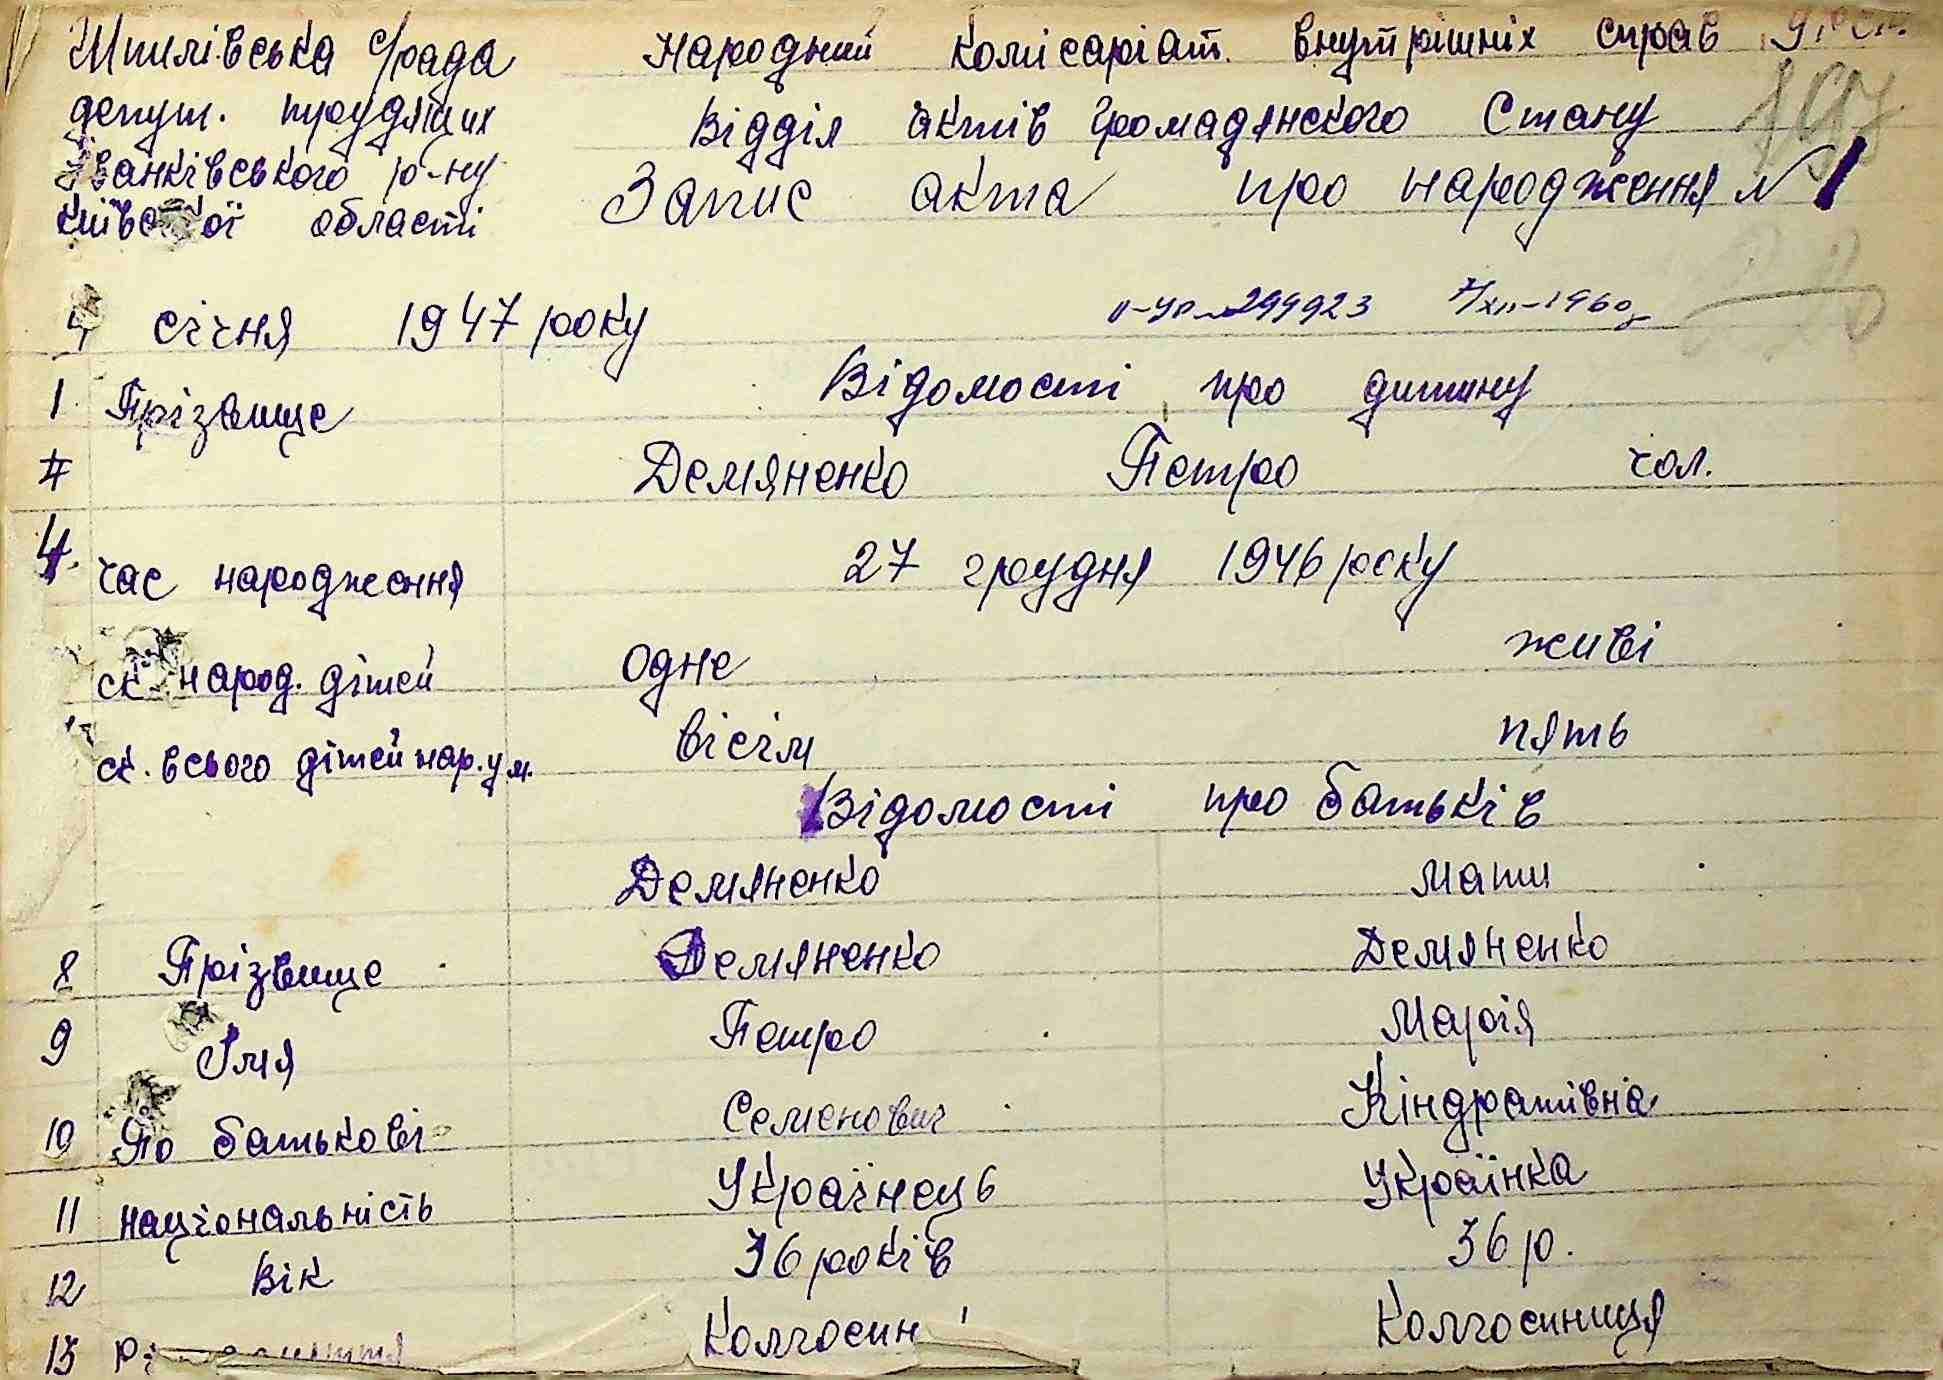 Шпилівська с/рада Народний комісаріат внутрішніх справ
депут. трудящих Відділ актів громадянского Стану
Іванківського р-ну Запис акта про народження № 1
Київської області
4 січня 1947 року 299923 7/XII-1960р
1 Прізвище Відомості про дитину
Демяненко Петро чол.
4. час народження 27 грудня 1946 року
ск. народ. дітей одне живі
ск. всього дітей нар. у м. вісім пять
Відомості про батьків
Демяненко мати
8 Прізвище Демяненко Демяненко
9 Імя Петро Марія
10 По батькові Семенович Кіндратівна
11 національність Українець Українка
12 Вік 36 років 36 р.
13 Колгоспн Колгоспниця